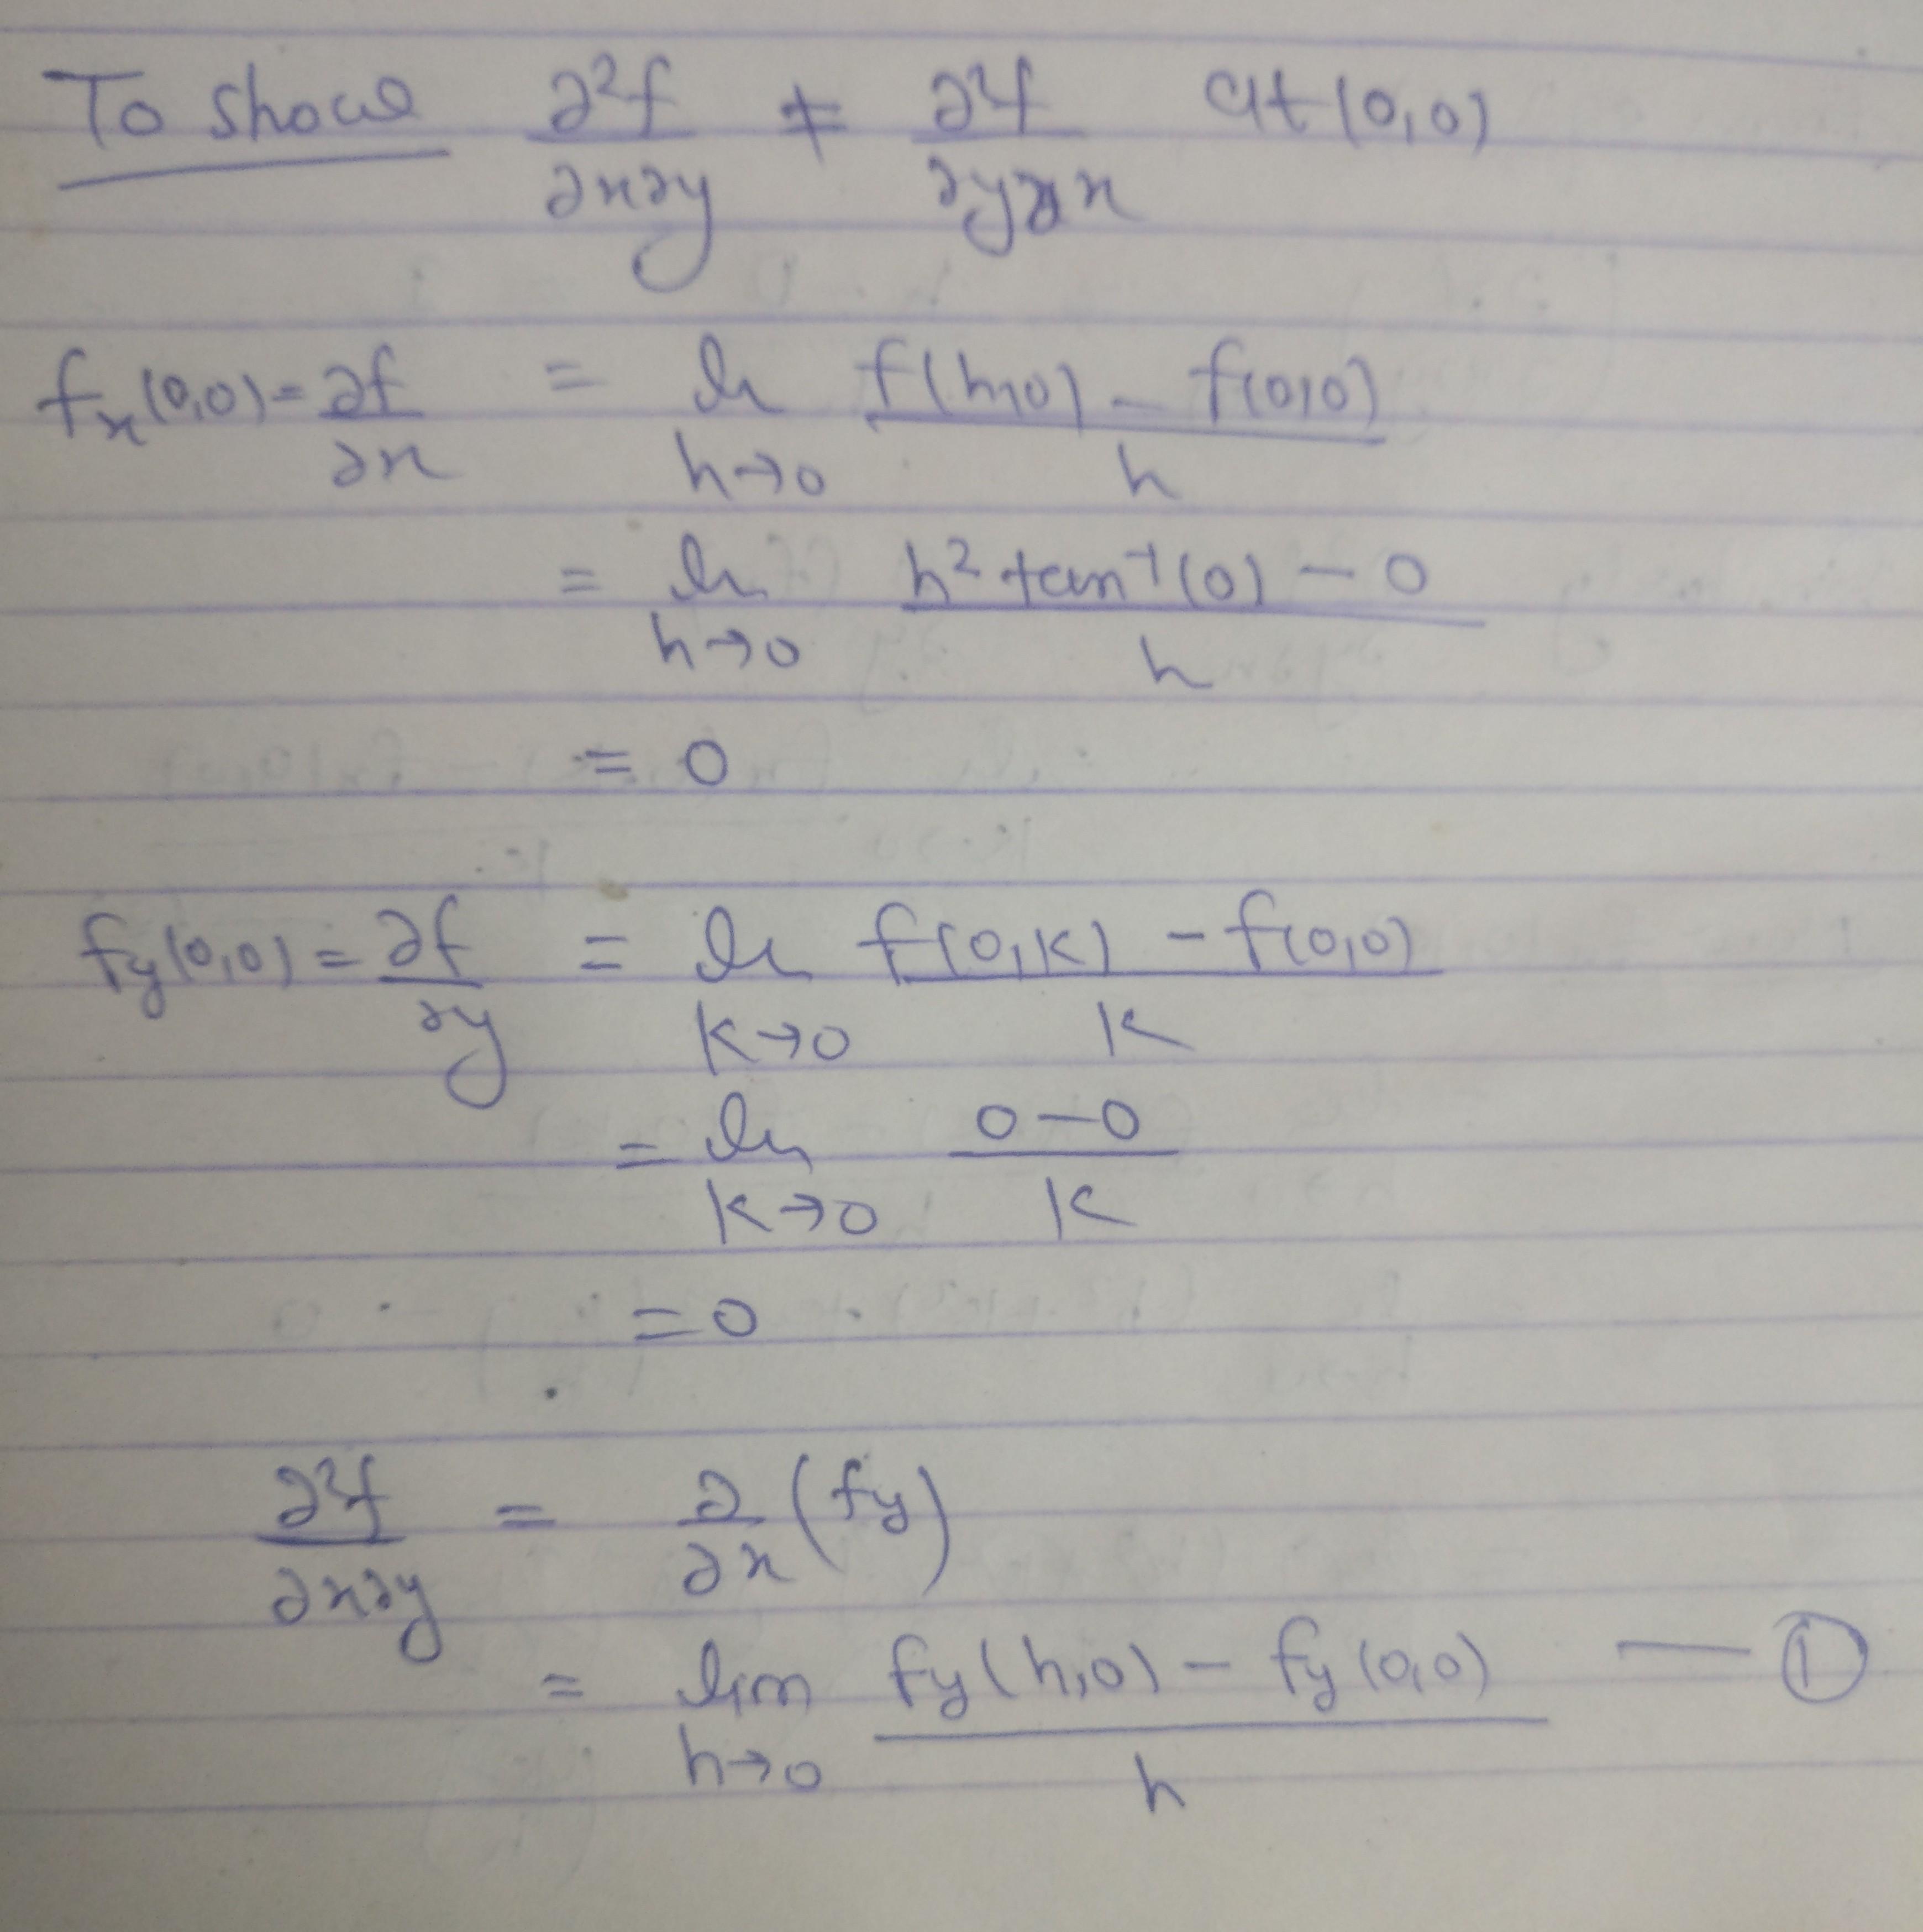 To show ∂²f/∂x∂y ≠ ∂²f/∂y∂x at (0,0)
fx(0,0) = ∂f/∂x = lim h→0 f(h,0) - f(0,0) / h
= lim h→0 h² tan⁻¹(0) - 0 / h
= 0
fy(0,0) = ∂f/∂y = lim k→0 f(0,k) - f(0,0) / k
= lim k→0 0-0 / k
= 0
∂²f/∂x∂y = ∂/∂x (fy)
= lim h→0 fy(h,0) - fy(0,0) / h — ①